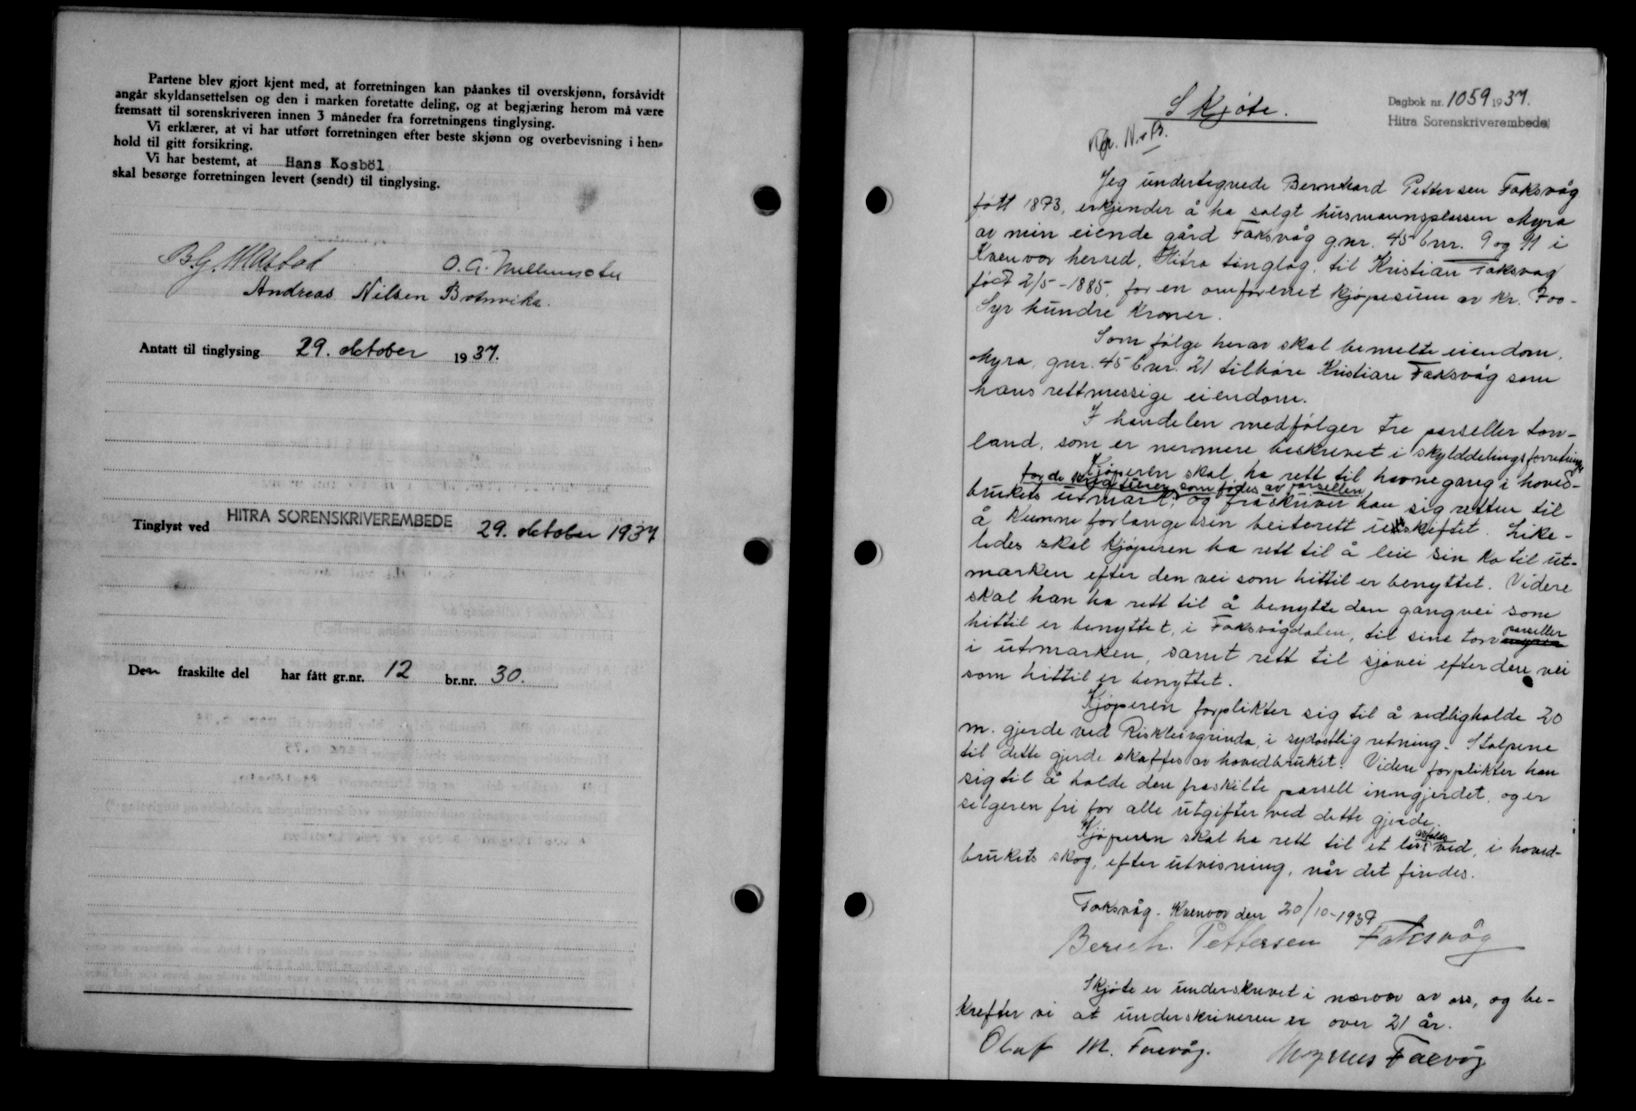 Partene blev gjort kjent med, at forretningen kan påankes til overskjønn, forsåvidt
angår skyldansettelsen og den i marken foretatte deling, og at begjæring herom må være
fremsatt til sorenskriveren innen 3 måneder fra forretningens tinglysing.
Vi erklærer, at vi har utført forretningen efter beste skjønn og overbevisning i hen-
hold til gitt forsikring.
Vi har bestemt, at Hans Kosböl
skal besørge forretningen levert (sendt) til tinglysing.
O. A.
Andreas Nilsen Botnvika.
Antatt til tinglysing 29. oktober 1937.
Tinglyst ved HITRA SORENSKRIVEREMBEDE 29. oktober 1937
Den fraskilte del har fått gr.nr. 12 br.nr. 30.
Skjøte.
Dagbok nr. 1059 1937.
Hitra Sorenskriverembede
Jeg undertegnede Bernhard Pettersen Faksvåg
født 1873, erkjender å ha solgt husmannsplassen Myra
av min eiende gård Faksvåg gnr. 45 bnr. 9 og 11 i
Kvenvær herred, Hitra tinglag, til Kristian Faksvag
född 2/5-1885, for en omforenet kjøpesum av kr. 700-
Syv hundre kroner.
Som følge herav skal bemelte eiendom,
Myra, gnr. 45 bnr. 21 tilhøre Kristian Faksvåg som
hans rettmessige eiendom.
I handelen medfølger tre parseller torv-
land, som er nermere beskrevet i skylddelingsforretninge
Kjøperen skal ha rett til havnegang i hoved-
for de kreaturer som födes av parsellen
brukets utmark, og fraskriver han sig retten til
å kunne forlange sin beiterett utskiftet. Like-
ledes skal kjøperen ha rett til å leie sin ko til ut-
marken efter den vei som hittil er benyttet. Videre
skal han ha rett til å benytte den gangvei som
hittil er benyttet, i Faksvågdalen, til sine torvparseller
i utmarken, samt rett til sjøvei efter den vei
som hittil er benyttet.
Kjøperen forplikter sig til å vedligholde 20
m. gjerde ved Riskleivgrinda, i sydøstlig retning. Stolpene
til dette gjerde skaffes av hovedbruket. Videre forplikter han
sig til å holde den fraskilte parsell inngjerdet, og er
selgeren fri for alle utgifter ved dette gjerde.
Kjøperen skal ha rett til et lass ved, i hoved-
brukets skog, efter utvisning, når det findes.
Faksvåg. Kvenvær den 20/10-1937
Bernh. Pettersen Faksvåg
Skjøte er underskrevet i nærvær av oss, og be-
krefter vi at underskriveren er over 21 år.
Olaf M. Faxvåg. Magnus Faxvåg